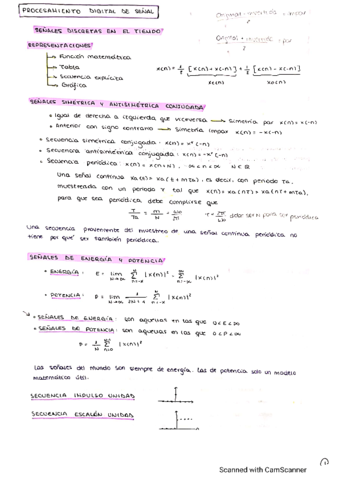 PROCESAMIENTO DIGITAL DE SEÑAL
SEÑALES DISCRETAS EN EL TIEMPO
REPRESENTACIONES
→ Función matemática
→ Tabla
→ Secuencia explícita
→ Gráfica
x(n) = 1/2 [x(n) + x(-n)] + 1/2 [x(n) - x(-n)]
SEÑALES SIMÉTRICA Y ANTISIMÉTRICA CONJUGADA
• Igual de derecha a izquierda que viceversa → Simetría par x(n) = x(-n)
• Anterior con signo contrario → Simetría impar x(n) = -x(-n)
• Secuencia simétrica conjugada: x(n) = x*(-n)
• Secuencia antisimétrica conjugada: x(n) = -x*(-n)
• Secuencia periódica: x(n) = x(n+N), -∞ < n < ∞ N ∈
Una señal continua xa(t) = xa(t + mTa), es decir, con periodo Ta,
muestreada con un periodo T tal que x(n) = xa(nT) = xa(nT + mTa),
para que sea periódica debe cumplirse que
debe ser para ser periódica
Una secuencia proveniente del muestreo de una señal continua periódica no
tiene por qué ser también periódica.
SEÑALES DE ENERGÍA Y POTENCIA
• ENERGÍA: E = lim Σ |x(n)|² = Σ |x(n)|²
• POTENCIA: P = lim 1/(2N+1) Σ |x(n)|²
• SEÑALES DE ENERGÍA: son aquellas en las que 0 < E < ∞
• SEÑALES DE POTENCIA: son aquellas en las que 0 < P < ∞
P = 1/N Σ |x(n)|²
Las señales del mundo son siempre de energía. Las de potencia solo un modelo
matemático útil.
SECUENCIA IMPULSO UNIDAD
SECUENCIA ESCALÓN UNIDAD
Scanned with CamScanner